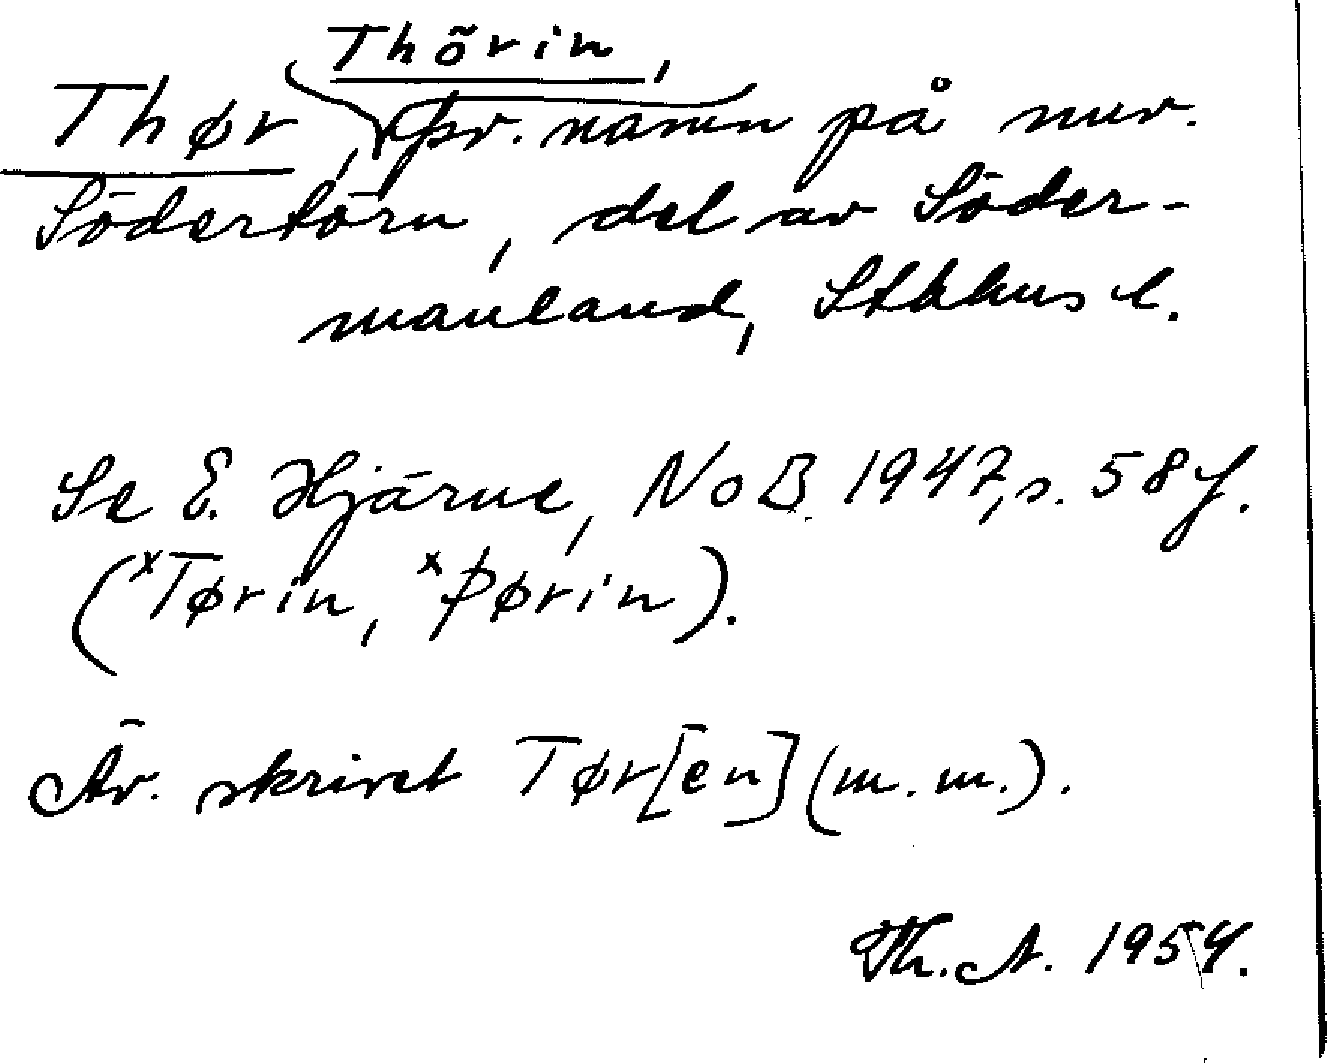 Thörin,
Thør, fsv. namn på nuv.
Södertörn, del av Söder-
manland, Sthlms l.
Se E. Hjärne, NoB 1947, s. 58 f.
(ˣTørin, ˣÞørin).
Äv. skrivet Tør[en] (m.m.).
Th. A. 1954.